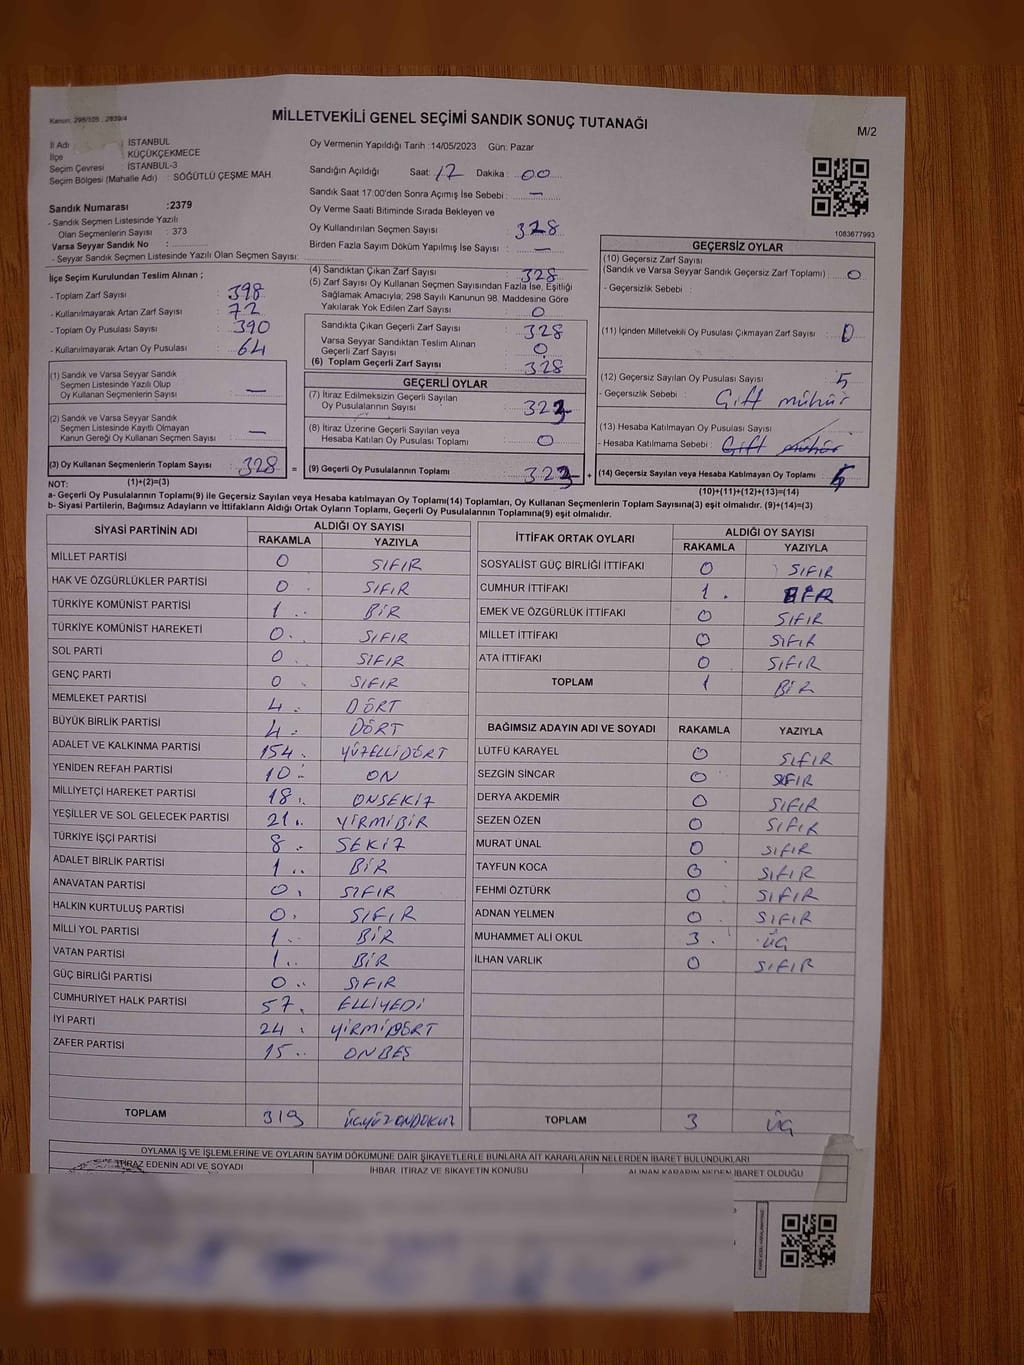 Kanun: 298/105 : 2839/4
MİLLETVEKİLİ GENEL SEÇİMİ SANDIK SONUÇ TUTANAĞI
M/2
İl Adı : İSTANBUL
İlçe : KÜÇÜKÇEKMECE
Seçim Çevresi : İSTANBUL-3
Seçim Bölgesi (Mahalle Adı) : SÖĞÜTLÜ ÇEŞME MAH.
Oy Vermenin Yapıldığı Tarih :14/05/2023 Gün: Pazar
Sandığın Açıldığı Saat: 17 Dakika : 00
Sandık Saat 17:00'den Sonra Açımış İse Sebebi : —
Sandık Numarası :2379
- Sandık Seçmen Listesinde Yazılı
Olan Seçmenlerin Sayısı : 373
Varsa Seyyar Sandık No :
- Seyyar Sandık Seçmen Listesinde Yazılı Olan Seçmen Sayısı:
Oy Verme Saati Bitiminde Sırada Bekleyen ve
Oy Kullandırılan Seçmen Sayısı : 328
Birden Fazla Sayım Döküm Yapılmış İse Sayısı : —
1083677993
İlçe Seçim Kurulundan Teslim Alınan ;
- Toplam Zarf Sayısı : 398
- Kullanılmayarak Artan Zarf Sayısı : 72
- Toplam Oy Pusulası Sayısı : 390
- Kullanılmayarak Artan Oy Pusulası : 64
(1) Sandık ve Varsa Seyyar Sandık
Seçmen Listesinde Yazılı Olup
Oy Kullanan Seçmenlerin Sayısı : —
(2) Sandık ve Varsa Seyyar Sandık
Seçmen Listesinde Kayıtlı Olmayan
Kanun Gereği Oy Kullanan Seçmen Sayısı : —
(3) Oy Kullanan Seçmenlerin Toplam Sayısı : 328 =
(1)+(2)=(3)
(4) Sandıktan Çıkan Zarf Sayısı : 328
(5) Zarf Sayısı Oy Kullanan Seçmen Sayısından Fazla İse, Eşitliği
Sağlamak Amacıyla; 298 Sayılı Kanunun 98. Maddesine Göre
Yakılarak Yok Edilen Zarf Sayısı : 0
Sandıkta Çıkan Geçerli Zarf Sayısı : 328
Varsa Seyyar Sandıktan Teslim Alınan
Geçerli Zarf Sayısı : 0
(6) Toplam Geçerli Zarf Sayısı : 328
GEÇERLİ OYLAR
(7) İtiraz Edilmeksizin Geçerli Sayılan
Oy Pusulalarının Sayısı : 323
(8) İtiraz Üzerine Geçerli Sayılan veya
Hesaba Katılan Oy Pusulası Toplamı : 0
(9) Geçerli Oy Pusulalarının Toplamı : 323 +
GEÇERSİZ OYLAR
(10) Geçersiz Zarf Sayısı
(Sandık ve Varsa Seyyar Sandık Geçersiz Zarf Toplamı) : 0
- Geçersizlik Sebebi :
(11) İçinden Milletvekili Oy Pusulası Çıkmayan Zarf Sayısı : 0
(12) Geçersiz Sayılan Oy Pusulası Sayısı : 5
- Geçersizlik Sebebi : Çift mühür
(13) Hesaba Katılmayan Oy Pusulası Sayısı :
- Hesaba Katılmama Sebebi : Çift mühür
(14) Geçersiz Sayılan veya Hesaba Katılmayan Oy Toplamı : 5
(10)+(11)+(12)+(13)=(14)
NOT:
a- Geçerli Oy Pusulalarının Toplamı(9) ile Geçersiz Sayılan veya Hesaba katılmayan Oy Toplamı(14) Toplamları, Oy Kullanan Seçmenlerin Toplam Sayısına(3) eşit olmalıdır. (9)+(14)=(3)
b- Siyasi Partilerin, Bağımsız Adayların ve İttifakların Aldığı Ortak Oyların Toplamı, Geçerli Oy Pusulalarının Toplamına(9) eşit olmalıdır.
SİYASİ PARTİNİN ADI ALDIĞI OY SAYISI
RAKAMLA YAZIYLA
MİLLET PARTİSİ 0 SIFIR
HAK VE ÖZGÜRLÜKLER PARTİSİ 0 SIFIR
TÜRKİYE KOMÜNİST PARTİSİ 1 BİR
TÜRKİYE KOMÜNİST HAREKETİ 0 SIFIR
SOL PARTİ 0 SIFIR
GENÇ PARTİ 0 SIFIR
MEMLEKET PARTİSİ 4 DÖRT
BÜYÜK BİRLİK PARTİSİ 4 DÖRT
ADALET VE KALKINMA PARTİSİ 154 YÜZELLİDÖRT
YENİDEN REFAH PARTİSİ 10 ON
MİLLİYETÇİ HAREKET PARTİSİ 18 ONSEKİZ
YEŞİLLER VE SOL GELECEK PARTİSİ 21 YİRMİBİR
TÜRKİYE İŞÇİ PARTİSİ 8 SEKİZ
ADALET BİRLİK PARTİSİ 1 BİR
ANAVATAN PARTİSİ 0 SIFIR
HALKIN KURTULUŞ PARTİSİ 0 SIFIR
MİLLİ YOL PARTİSİ 1 BİR
VATAN PARTİSİ 1 BİR
GÜÇ BİRLİĞİ PARTİSİ 0 SIFIR
CUMHURİYET HALK PARTİSİ 57 ELLİYEDİ
İYİ PARTİ 24 YİRMİDÖRT
ZAFER PARTİSİ 15 ONBEŞ
TOPLAM 319 ÜÇYÜZONDOKUZ
İTTİFAK ORTAK OYLARI ALDIĞI OY SAYISI
RAKAMLA YAZIYLA
SOSYALİST GÜÇ BİRLİĞİ İTTİFAKI 0 SIFIR
CUMHUR İTTİFAKI 1 BİR
EMEK VE ÖZGÜRLÜK İTTİFAKI 0 SIFIR
MİLLET İTTİFAKI 0 SIFIR
ATA İTTİFAKI 0 SIFIR
TOPLAM 1 BİR
BAĞIMSIZ ADAYIN ADI VE SOYADI RAKAMLA YAZIYLA
LÜTFÜ KARAYEL 0 SIFIR
SEZGİN SİNCAR 0 SIFIR
DERYA AKDEMİR 0 SIFIR
SEZEN ÖZEN 0 SIFIR
MURAT ÜNAL 0 SIFIR
TAYFUN KOCA 0 SIFIR
FEHMİ ÖZTÜRK 0 SIFIR
ADNAN YELMEN 0 SIFIR
MUHAMMET ALİ OKUL 3 ÜÇ
İLHAN VARLIK 0 SIFIR
TOPLAM 3 ÜÇ
OYLAMA İŞ VE İŞLEMLERİNE VE OYLARIN SAYIM DÖKÜMÜNE DAİR ŞİKAYETLERLE BUNLARA AİT KARARLARIN NELERDEN İBARET BULUNDUKLARI
İTİRAZ EDENİN ADI VE SOYADI İHBAR, İTİRAZ VE ŞİKAYETİN KONUSU ALINAN KARARIN NEDEN İBARET OLDUĞU